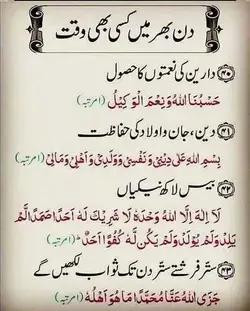 دن بھر میں کسی بھی وقت
۳۰ دارین کی نعمتوں کا حصول
حَسْبُنَا اللهُ وَنِعْمَ الْوَكِيْلُ (۱ مرتبہ)
۳۱ دین، جان و اولاد کی حفاظت
بِسْمِ اللهِ عَلٰى دِيْنِيْ وَنَفْسِيْ وَوَلَدِيْ وَاَهْلِيْ وَمَالِيْ (۱ مرتبہ)
۳۲ بیس لاکھ نیکیاں
لَا اِلٰهَ اِلَّا اللهُ وَحْدَهٗ لَا شَرِيْكَ لَهٗ اَحَدًا صَمَدًا لَّمْ
يَلِدْ وَلَمْ يُوْلَدْ وَلَمْ يَكُنْ لَّهٗ كُفُوًا اَحَدٌ (۱ مرتبہ)
۳۳ ستّر فرشتے ستّر دن تک ثواب لکھیں گے
جَزَى اللهُ عَنَّا مُحَمَّدًا مَا هُوَ اَهْلُهٗ (۱ مرتبہ)